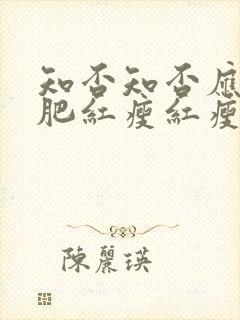 知否知否應
肥紅瘦紅瘦
陳麗瑛